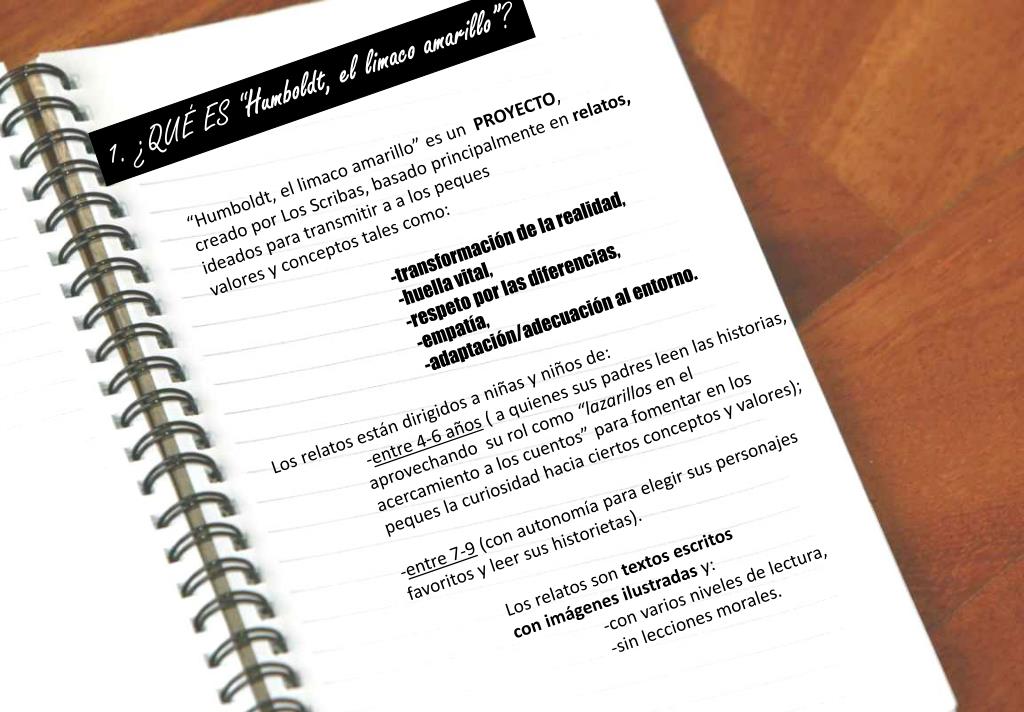 1. ¿QUÉ ES “Humboldt, el limaco amarillo”?
“Humboldt, el limaco amarillo” es un PROYECTO,
creado por Los Scribas, basado principalmente en relatos,
ideados para transmitir a a los peques
valores y conceptos tales como:
-transformación de la realidad,
-huella vital,
-respeto por las diferencias,
-empatía,
-adaptación/adecuación al entorno.
Los relatos están dirigidos a niñas y niños de:
-entre 4-6 años ( a quienes sus padres leen las historias,
aprovechando su rol como “lazarillos en el
acercamiento a los cuentos” para fomentar en los
peques la curiosidad hacia ciertos conceptos y valores);
-entre 7-9 (con autonomía para elegir sus personajes
favoritos y leer sus historietas).
Los relatos son textos escritos
con imágenes ilustradas y:
-con varios niveles de lectura,
-sin lecciones morales.